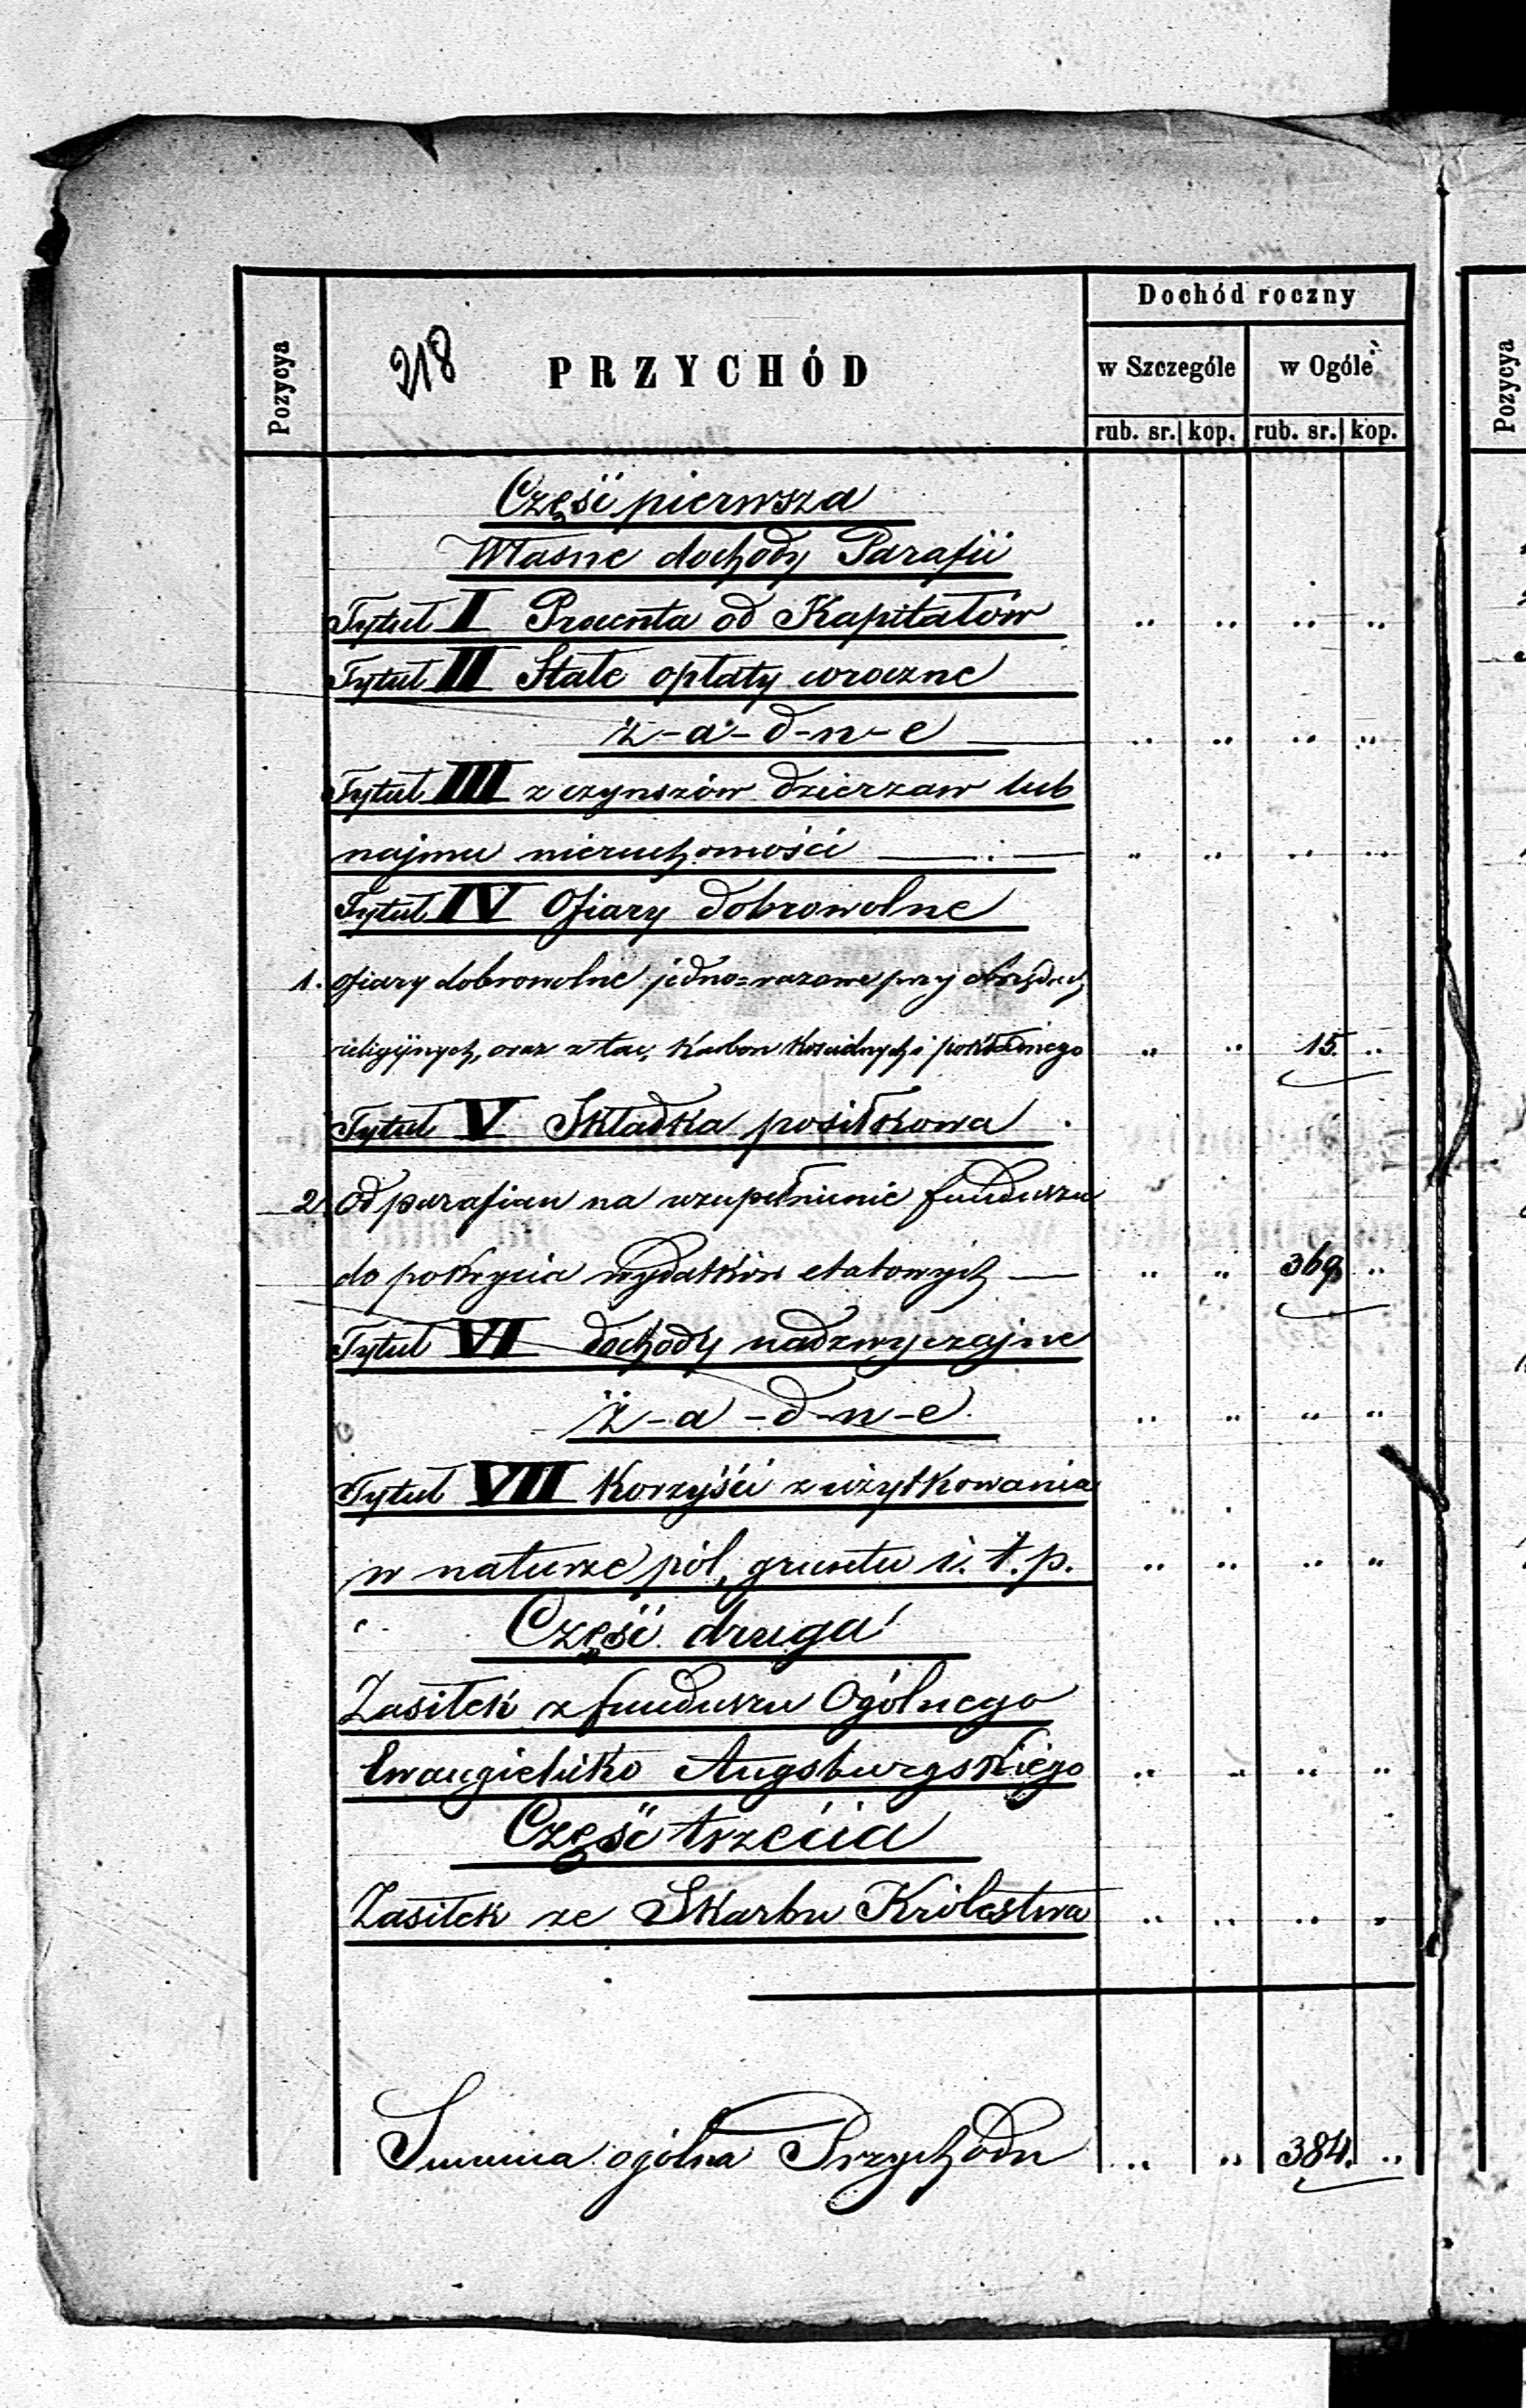 Dochód roczny
Pozycya
218 PRZYCHÓD
w Szczególe w Ogóle
Pozycya
rub. sr. kop. rub. sr. kop.
Część pierwsza
Własne dochody Parafii
Tytuł I Procenta od Kapitałów " " " "
Tytuł II Stałe opłaty uroczne
ż-a-d-n-e " " " "
Tytuł III z czynszów dzierżaw lub
najmu nieruchomości " " " "
Tytuł IV Ofiary dobrowolne
1. Ofiary dobrowolne jedno=razowe przy obrzędach
religijnych, oraz z tac, Karbon Kościelnych i pokładnego " " 15. "
Tytuł V Składka posiłkowa
2. Od parafian na uzupełnienie funduszu
do pokrycia wydatków etatowych " " 369 "
Tytuł VI dochody nadzwyczajne
ż-a-d-n-e. " " " "
Tytuł VII Korzyści z użytkowania
w naturze pól, gruntu i. t. p. " " " "
Część druga
Zasiłek z funduszu Ogólnego
Ewangielicko Augsburgskiego " " " "
Część trzecia
Zasiłek ze Skarbu Królestwa " " " "
Summa ogólna Przychodu " " 384. "